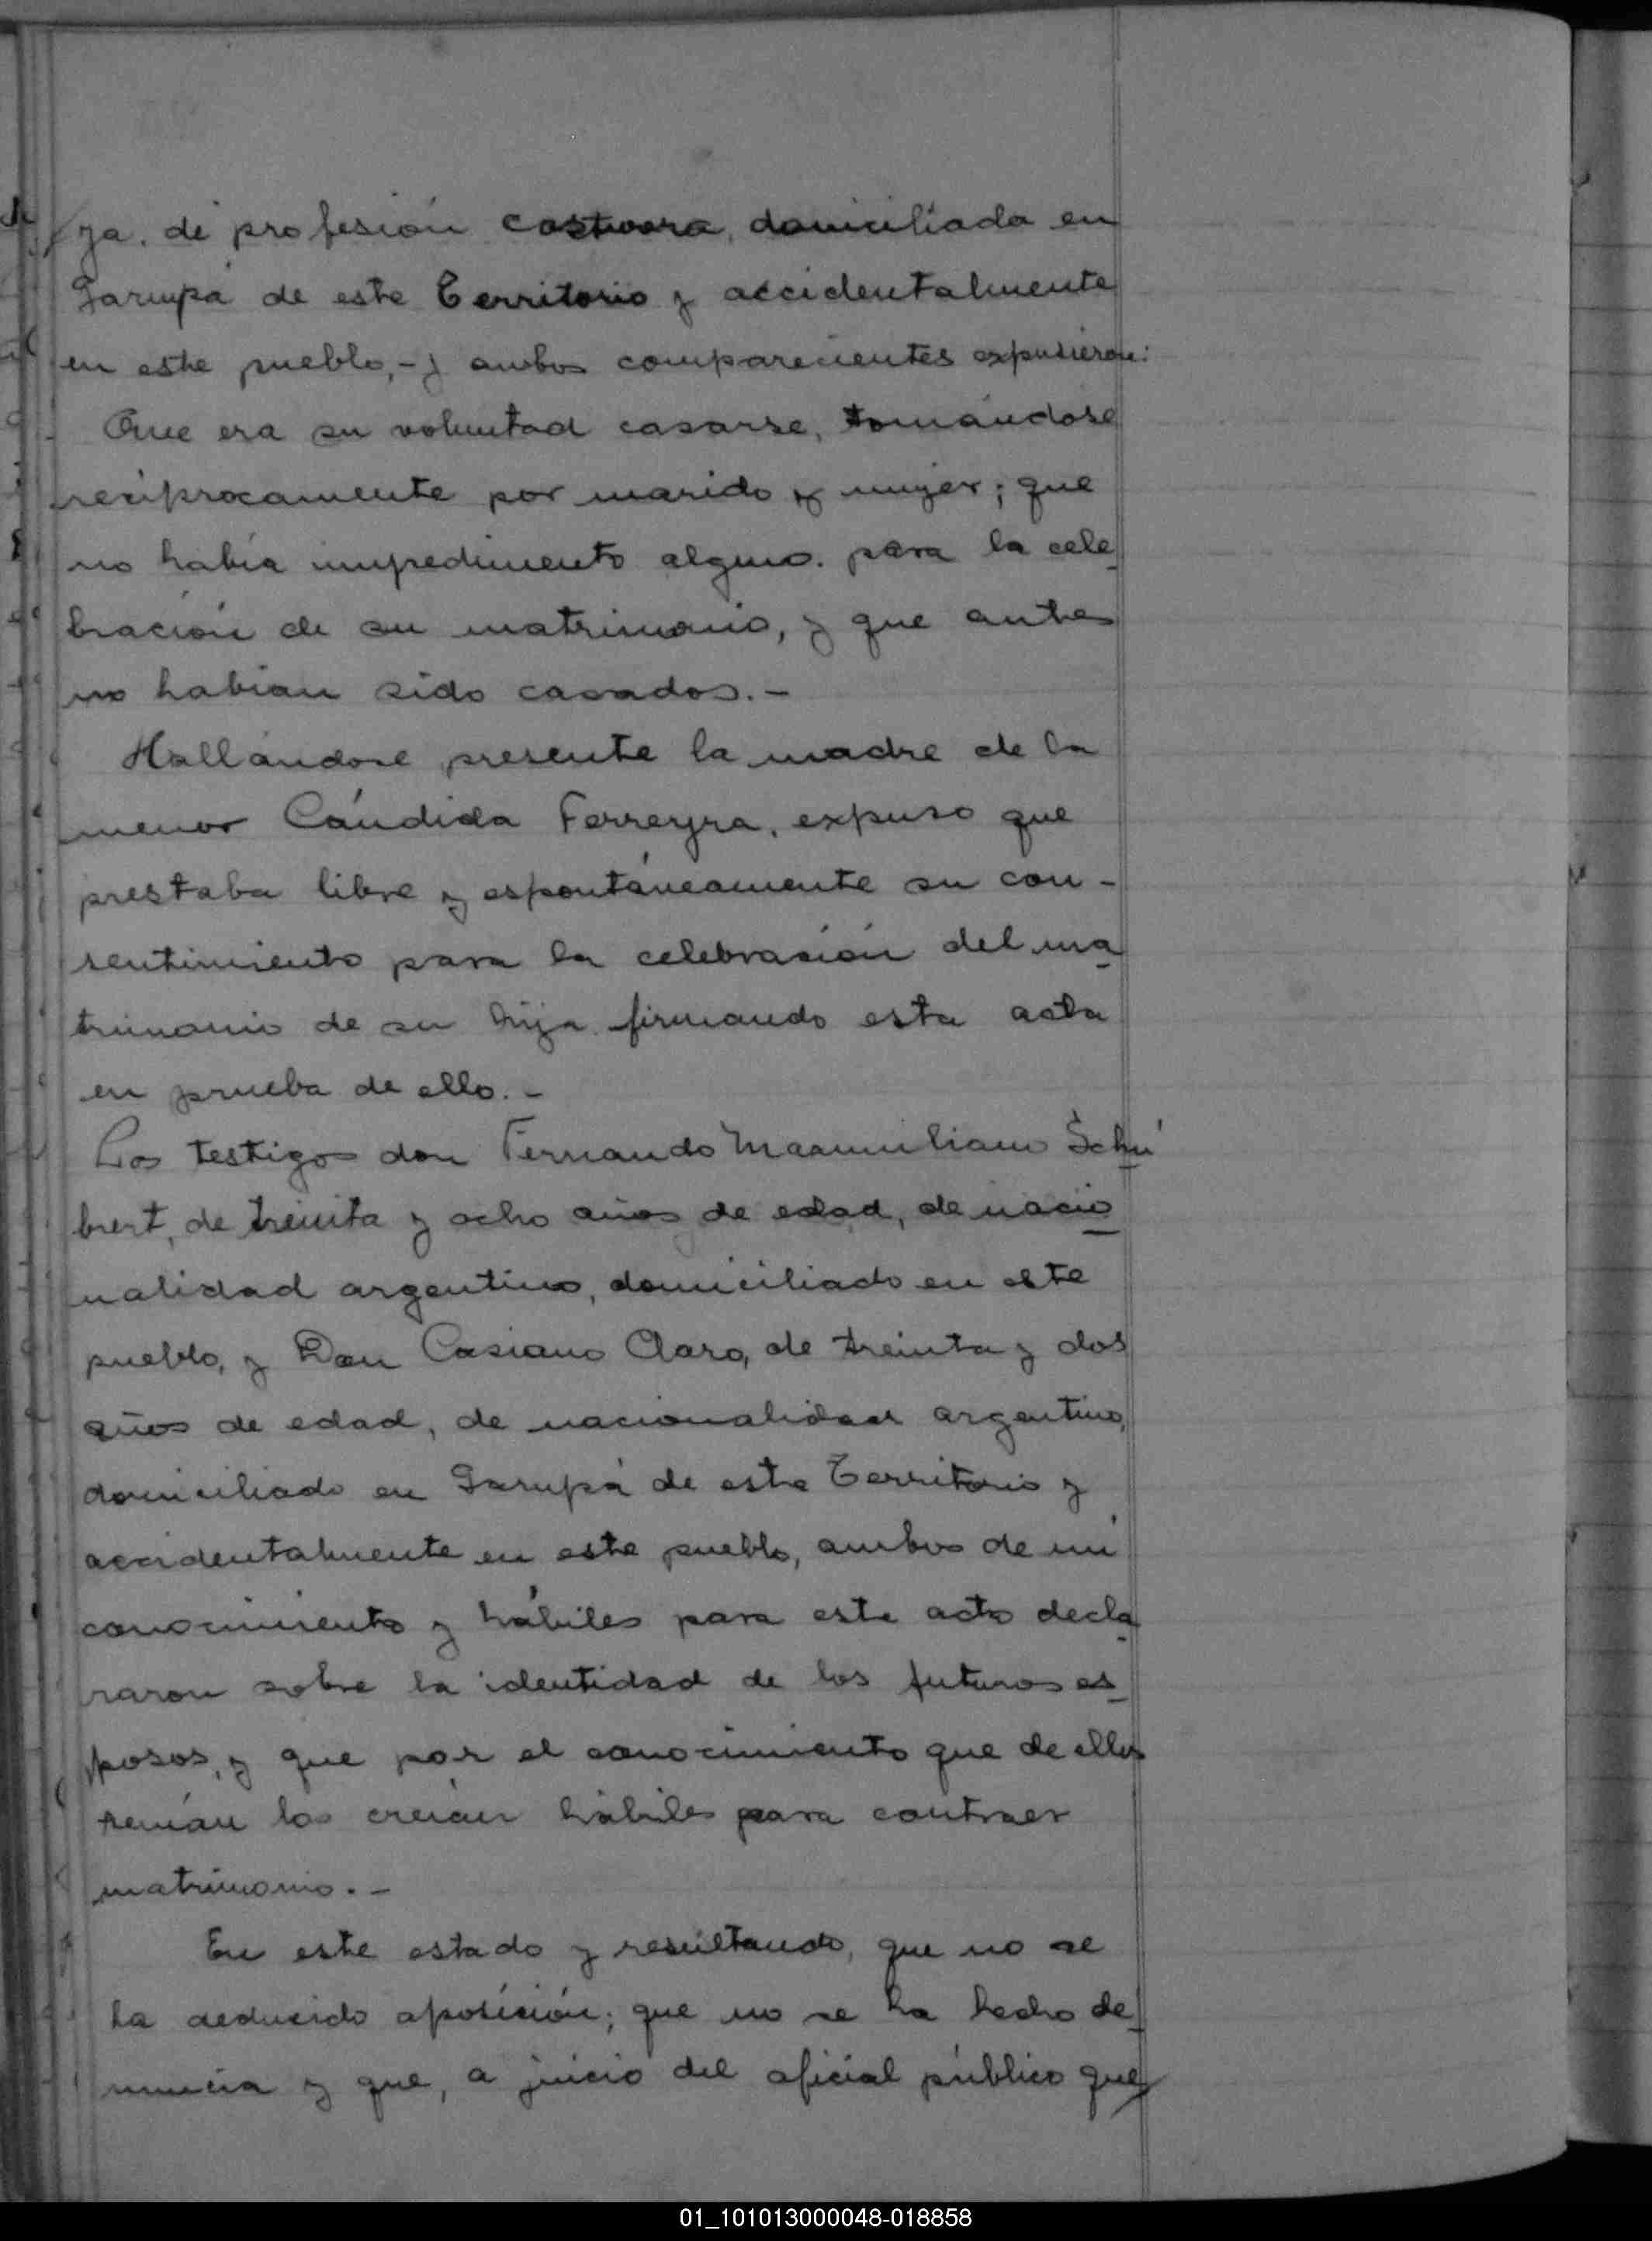 ya, de profesión costurera, domiciliada en
Garupá de este Territorio y accidentalmente
en este pueblo,- y ambos comparecientes expusieron:
Que era su voluntad casarse, tomándose
recíprocamente por marido y mujer; que
no había impedimento alguno para la cele
bración de su matrimonio, y que antes
no habían sido casados.-
Hallándose presente la madre de la
menor Cándida Ferreyra, expuso que
prestaba libre y espontáneamente su con-
sentimiento para la celebración del ma
trimonio de su hija firmando esta acta
en prueba de ello.-
Los testigos don Fernando Maximiliano Schu
bert, de treinta y ocho años de edad, de nacio
nalidad argentino, domiciliado en este
pueblo, y Don Casiano Claro, de treinta y dos
años de edad, de nacionalidad argentino,
domiciliado en Garupá de este Territorio y
accidentalmente en este pueblo, ambos de mi
conocimiento y hábiles para este acto decla
raron sobre la identidad de los futuros es
posos, y que por el conocimiento que de ellos
tenían los creían hábiles para contraer
matrimonio.-
En este estado y resultando, que no se
ha deducido oposición; que no se ha hecho de
nuncia y que, a juicio del oficial público que
01_101013000048-018858